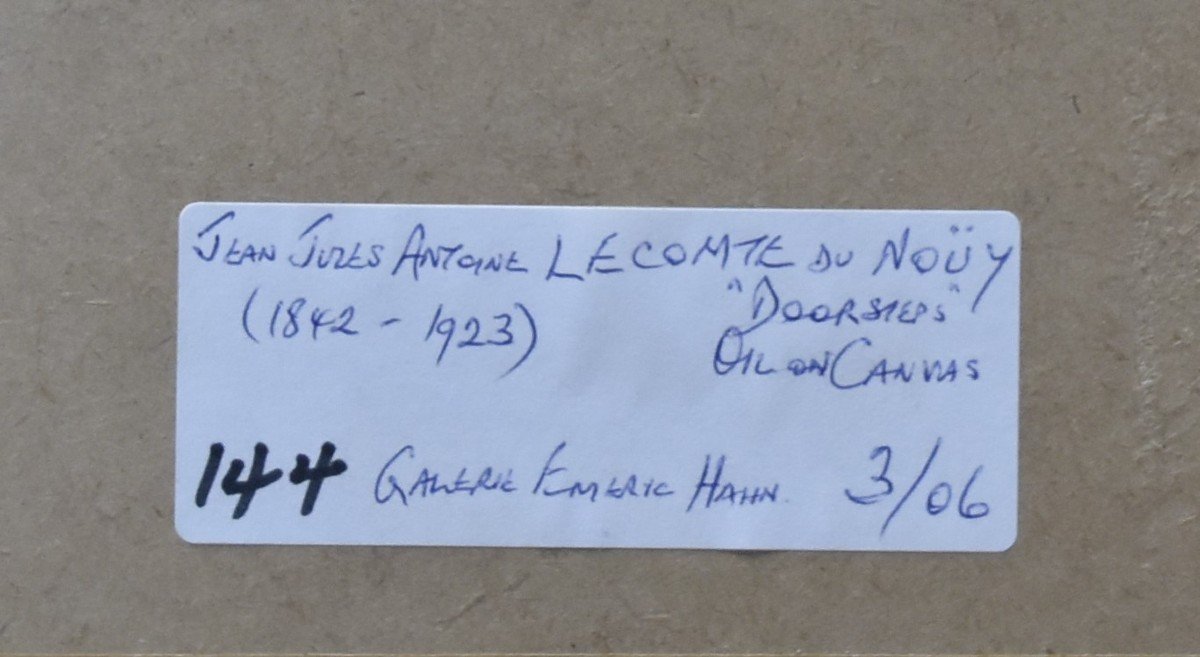 JEAN JULES ANTOINE LECOMTE DU NOÜY
(1842 - 1923) "DOORSTEPS"
OIL ON CANVAS
144 GALERIE EMERIC HAHN 3/06